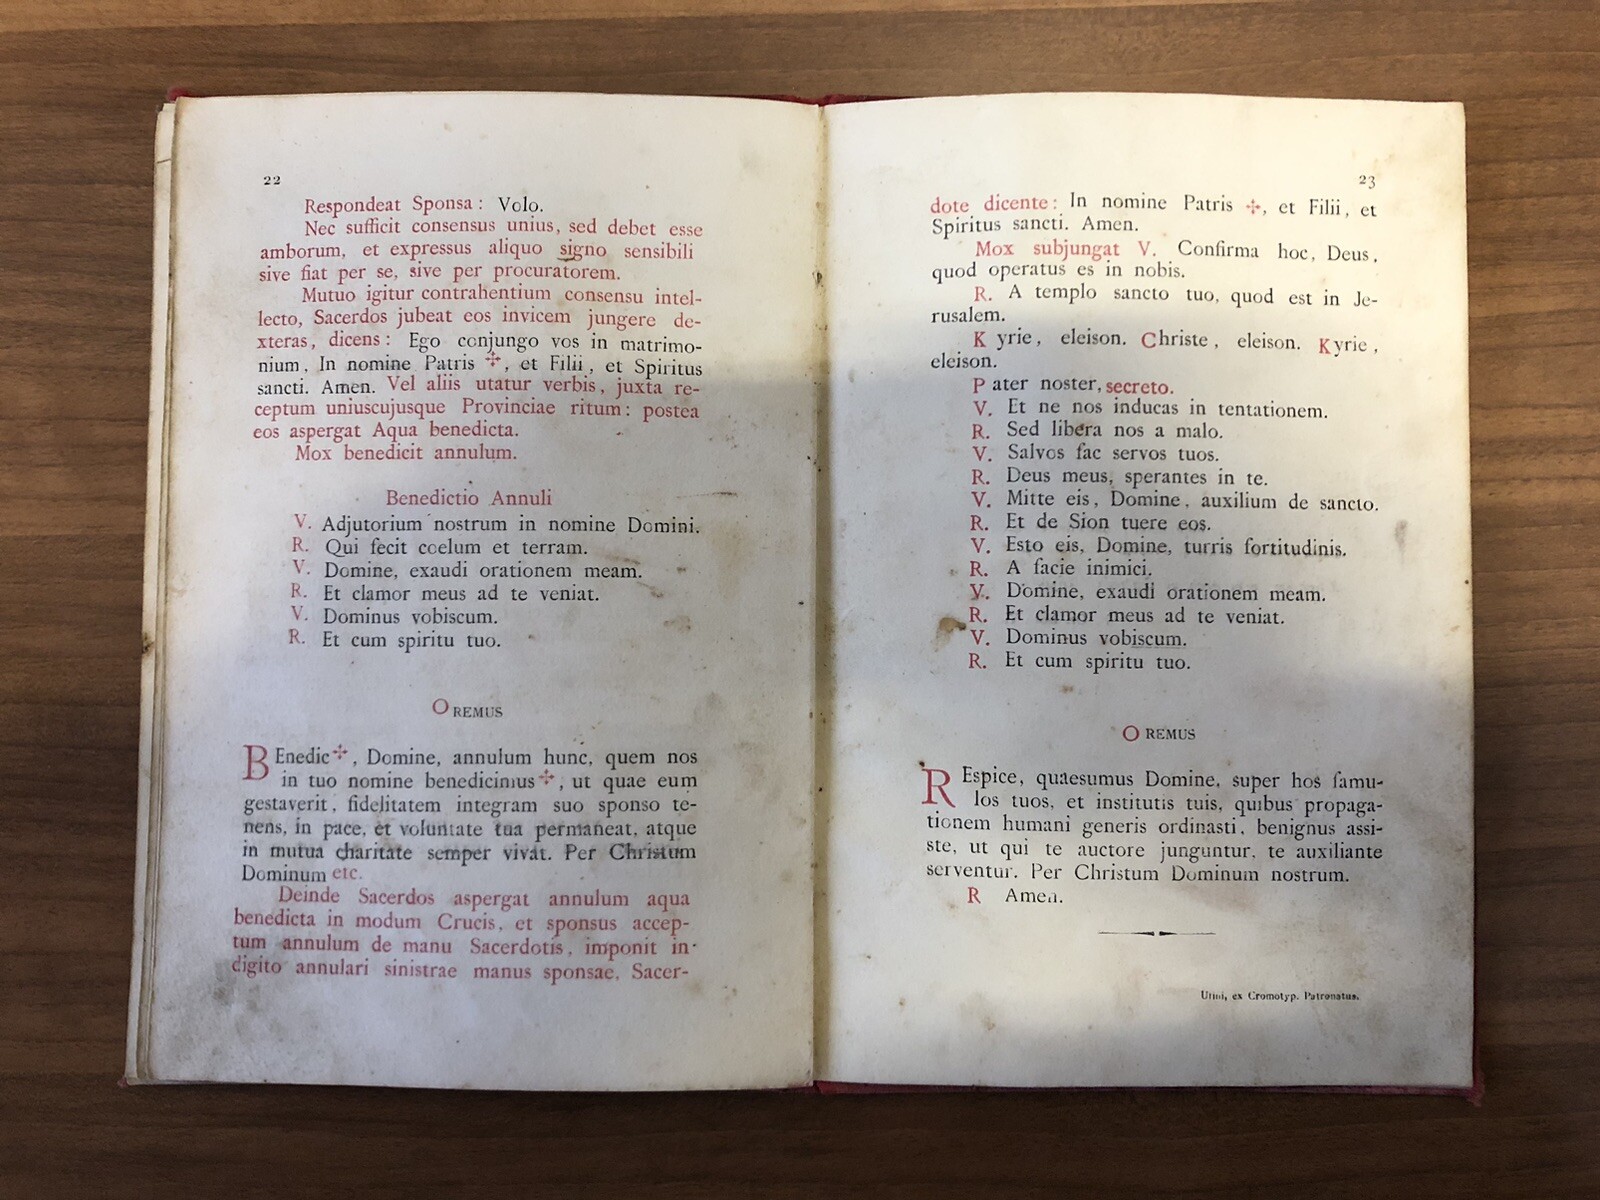 22
Respondeat Sponsa: Volo.
Nec sufficit consensus unius, sed debet esse
amborum, et expressus aliquo signo sensibili
sive fiat per se, sive per procuratorem.
Mutuo igitur contrahentium consensu intel-
lecto, Sacerdos jubeat eos invicem jungere de-
xteras, dicens: Ego conjungo vos in matrimo-
nium, In nomine Patris ✢, et Filii, et Spiritus
sancti. Amen. Vel aliis utatur verbis, juxta re-
ceptum uniuscujusque Provinciae ritum: postea
eos aspergat Aqua benedicta.
Mox benedicit annulum.
Benedictio Annuli
V. Adjutorium nostrum in nomine Domini.
R. Qui fecit coelum et terram.
V. Domine, exaudi orationem meam.
R. Et clamor meus ad te veniat.
V. Dominus vobiscum.
R. Et cum spiritu tuo.
OREMUS
BEnedic ✢, Domine, annulum hunc, quem nos
in tuo nomine benedicimus ✢, ut quae eum
gestaverit, fidelitatem integram suo sponso te-
nens, in pace, et voluntate tua permaneat, atque
in mutua charitate semper vivat. Per Christum
Dominum etc.
Deinde Sacerdos aspergat annulum aqua
benedicta in modum Crucis, et sponsus accep-
tum annulum de manu Sacerdotis, imponit in
digito annulari sinistrae manus sponsae, Sacer-
23
dote dicente: In nomine Patris ✢, et Filii, et
Spiritus sancti. Amen.
Mox subjungat V. Confirma hoc, Deus,
quod operatus es in nobis.
R. A templo sancto tuo, quod est in Je-
rusalem.
Kyrie, eleison. Christe, eleison. Kyrie,
eleison.
Pater noster, secreto.
V. Et ne nos inducas in tentationem.
R. Sed libera nos a malo.
V. Salvos fac servos tuos.
R. Deus meus, sperantes in te.
V. Mitte eis, Domine, auxilium de sancto.
R. Et de Sion tuere eos.
V. Esto eis, Domine, turris fortitudinis.
R. A facie inimici.
V. Domine, exaudi orationem meam.
R. Et clamor meus ad te veniat.
V. Dominus vobiscum.
R. Et cum spiritu tuo.
OREMUS
REspice, quaesumus Domine, super hos famu-
los tuos, et institutis tuis, quibus propaga-
tionem humani generis ordinasti, benignus assi-
ste, ut qui te auctore junguntur, te auxiliante
serventur. Per Christum Dominum nostrum.
R Amen.
Utini, ex Cromotyp. Patronatus.